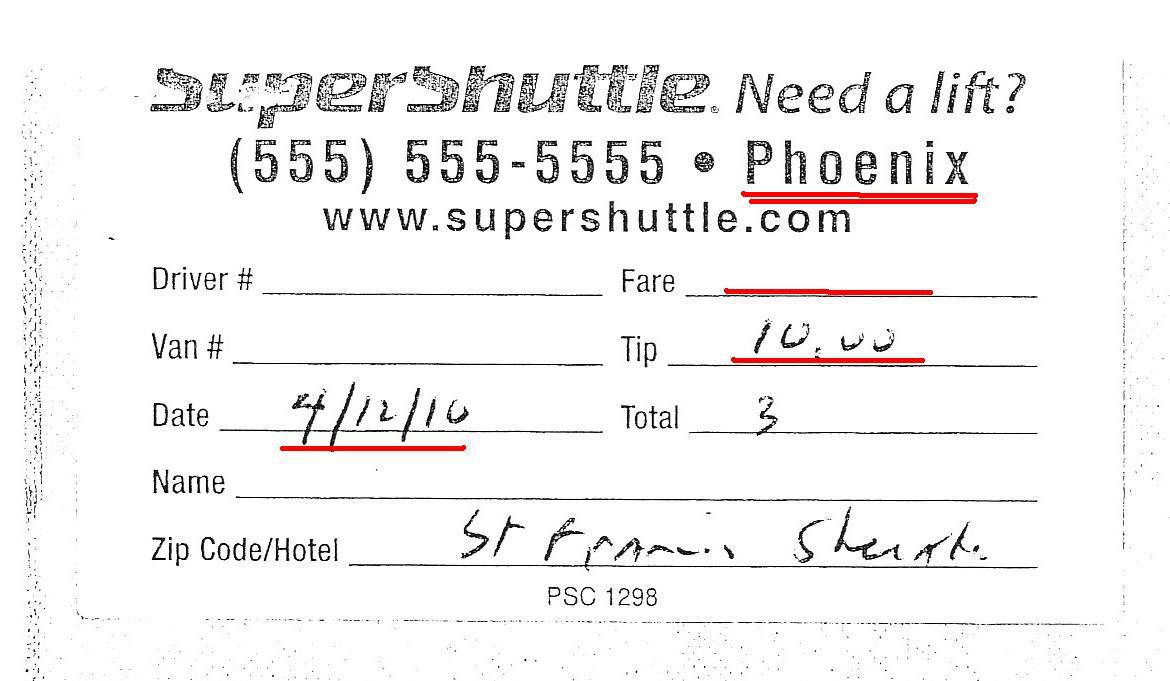 SuperShuttle. Need a lift?
(555) 555-5555 • Phoenix
www.supershuttle.com
Driver # Fare
Van # Tip 10.00
Date 4/12/10 Total 3
Name
Zip Code/Hotel St Francis
PSC 1298